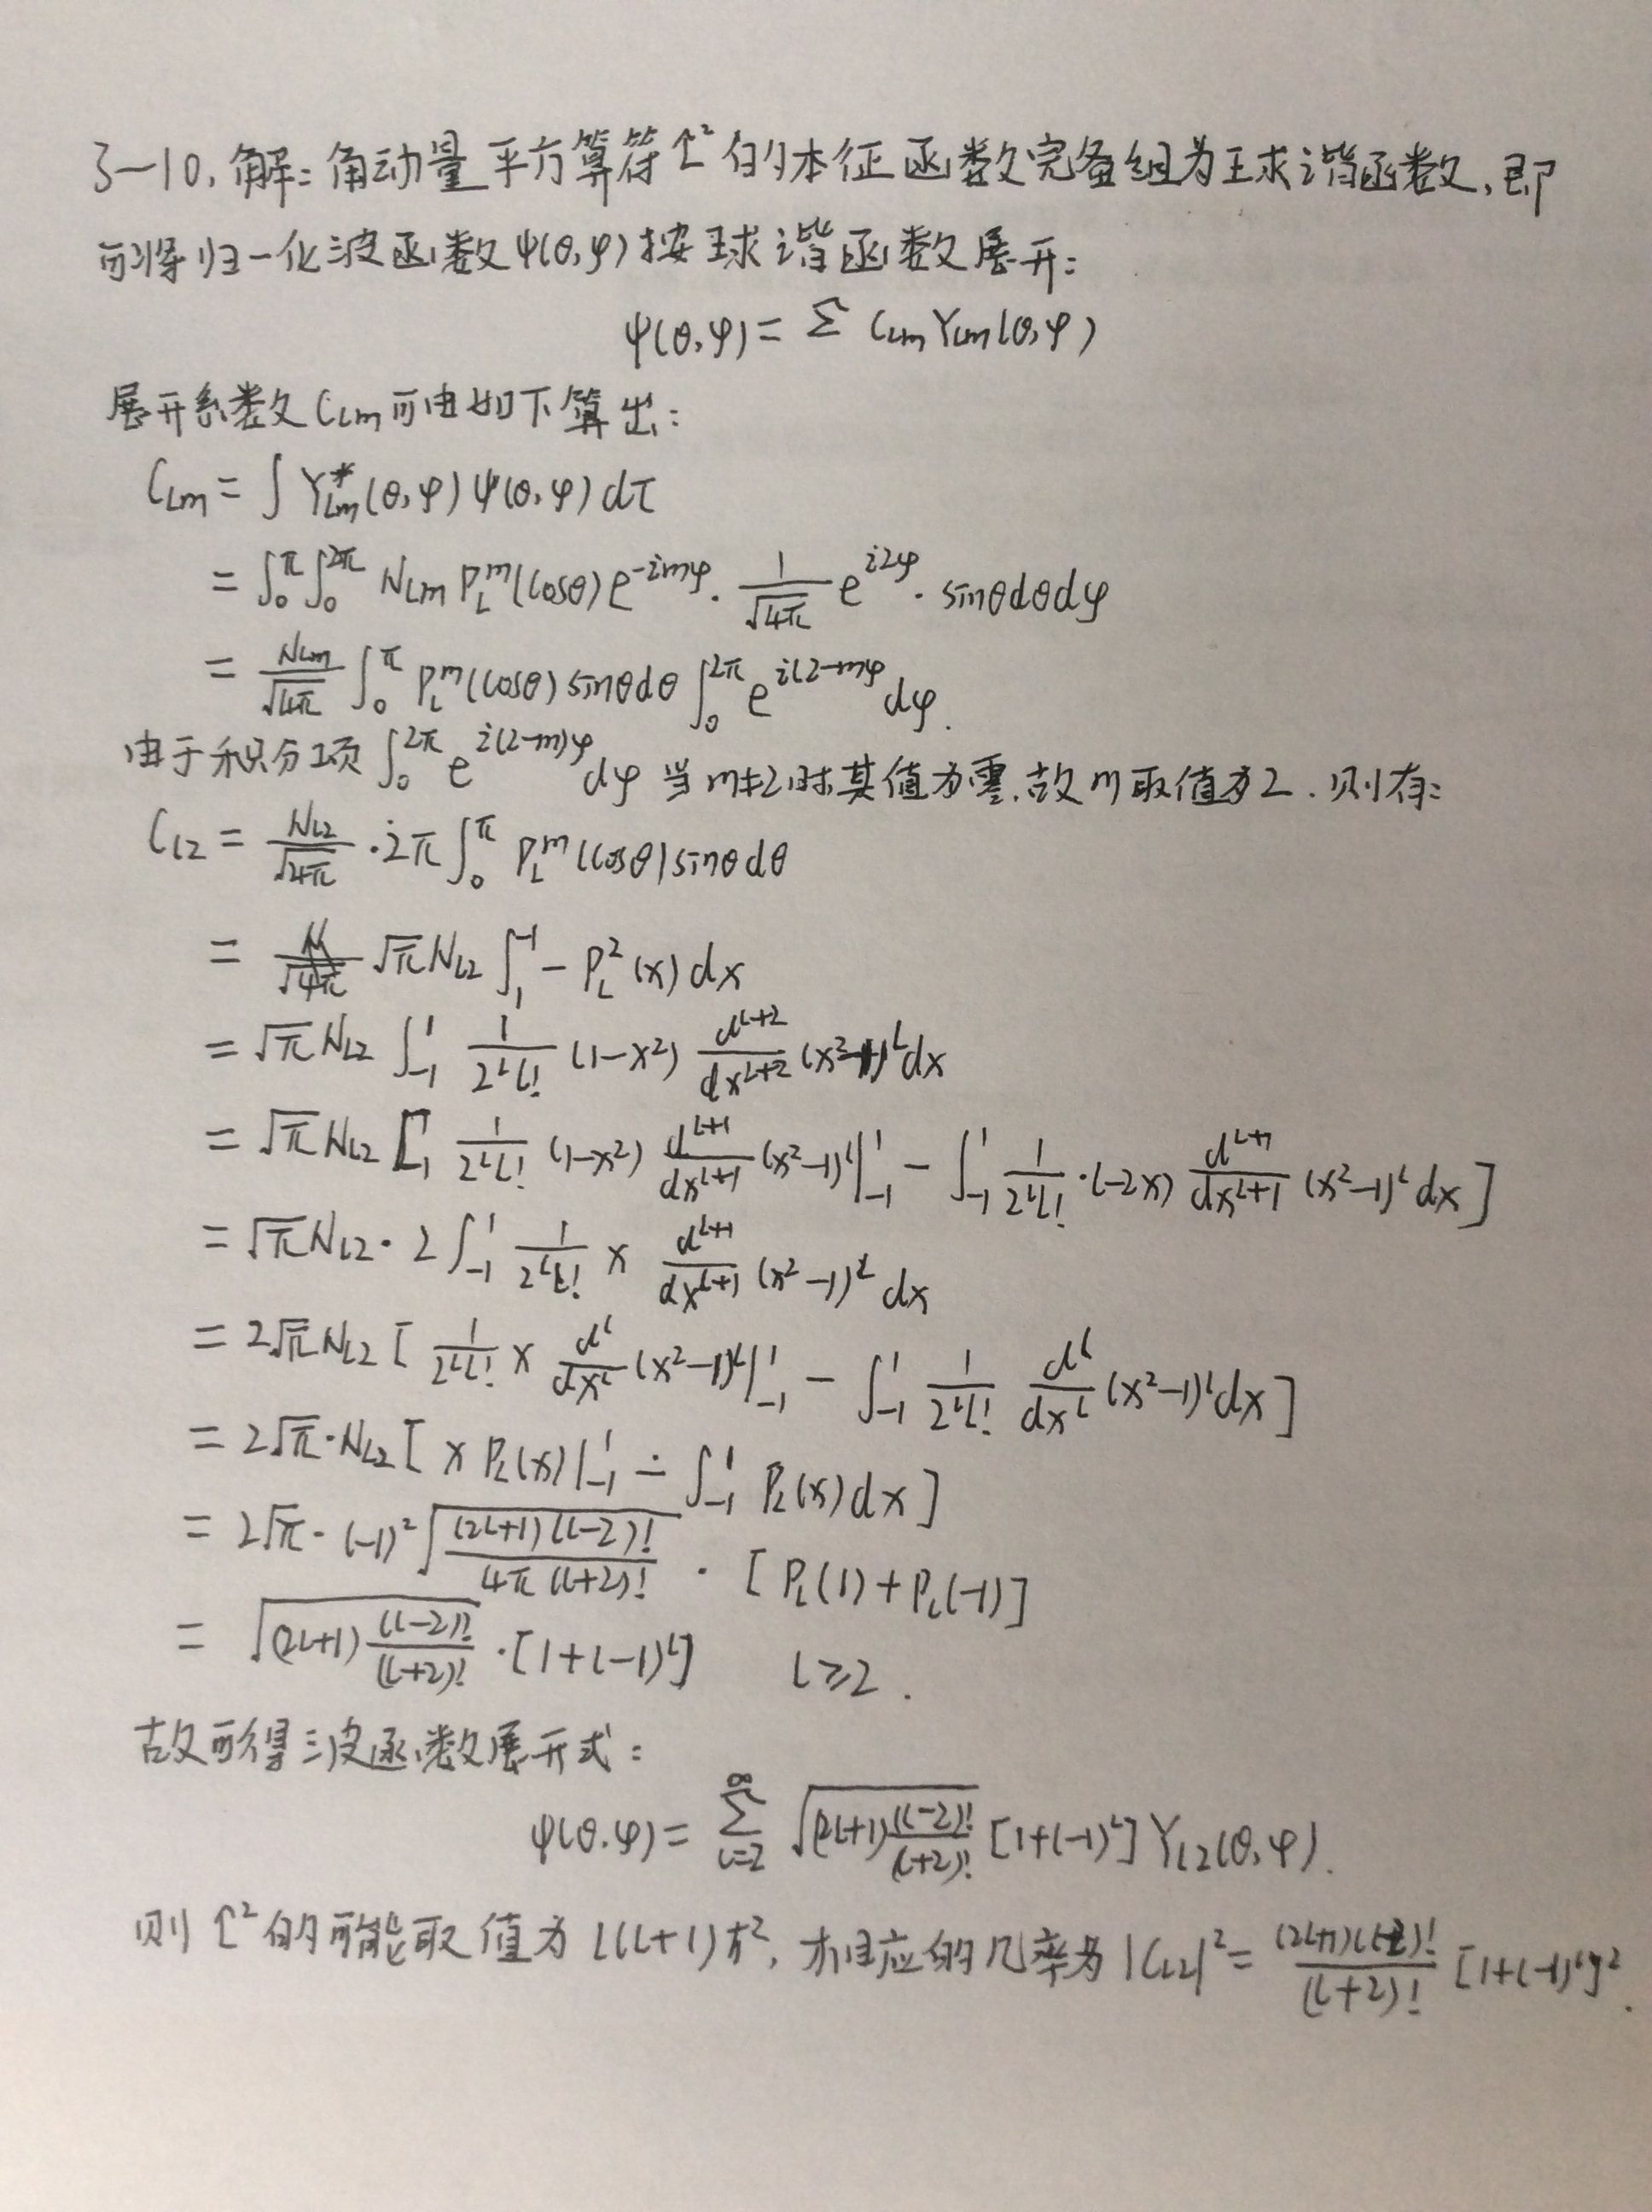 3-10. 解: 角动量平方算符 L̂² 的本征函数完备组为球谐函数, 即
可将归一化波函数 ψ(θ,φ) 按球谐函数展开:
ψ(θ,φ) = Σ C_{Lm} Y_{Lm}(θ,φ)
展开系数 C_{Lm} 可由如下算出:
C_{Lm} = ∫ Y*_{Lm}(θ,φ) ψ(θ,φ) dτ
= ∫_0^π ∫_0^{2π} N_{Lm} P_L^m(cosθ) e^{-imφ} · 1/√(4π) e^{i2φ} · sinθdθdφ
= N_{Lm}/√(4π) ∫_0^π P_L^m(cosθ) sinθdθ ∫_0^{2π} e^{i(2-m)φ} dφ.
由于积分项 ∫_0^{2π} e^{i(2-m)φ} dφ 当 m≠2 时其值为零, 故 m 取值为 2. 则有:
C_{L2} = N_{L2}/√(4π) · 2π ∫_0^π P_L^m(cosθ) sinθdθ
= √π N_{L2} ∫_1^{-1} - P_L^2(x) dx
= √π N_{L2} ∫_{-1}^1 1/(2^L L!) (1-x²) d^{L+2}/dx^{L+2} (x²-1)^L dx
= √π N_{L2} [ 1/(2^L L!) (1-x²) d^{L+1}/dx^{L+1} (x²-1)^L |_{-1}^1 - ∫_{-1}^1 1/(2^L L!) · (-2x) d^{L+1}/dx^{L+1} (x²-1)^L dx ]
= √π N_{L2} · 2 ∫_{-1}^1 1/(2^L L!) x d^{L+1}/dx^{L+1} (x²-1)^L dx
= 2√π N_{L2} [ 1/(2^L L!) x d^L/dx^L (x²-1)^L |_{-1}^1 - ∫_{-1}^1 1/(2^L L!) d^L/dx^L (x²-1)^L dx ]
= 2√π · N_{L2} [ x P_L(x) |_{-1}^1 - ∫_{-1}^1 P_L(x) dx ]
= 2√π · (-1)² √((2L+1)(L-2)!/(4π(L+2)!)) · [P_L(1) + P_L(-1)]
= √((2L+1) (L-2)!/(L+2)!) · [1+(-1)^L] L≥2.
故可得波函数展开式:
ψ(θ,φ) = Σ_{L=2}^∞ √((2L+1) (L-2)!/(L+2)!) [1+(-1)^L] Y_{L2}(θ,φ).
则 L̂² 的可能取值为 L(L+1)ħ², 相应的几率为 |C_{L2}|² = (2L+1)(L-2)!/(L+2)! [1+(-1)^L]².